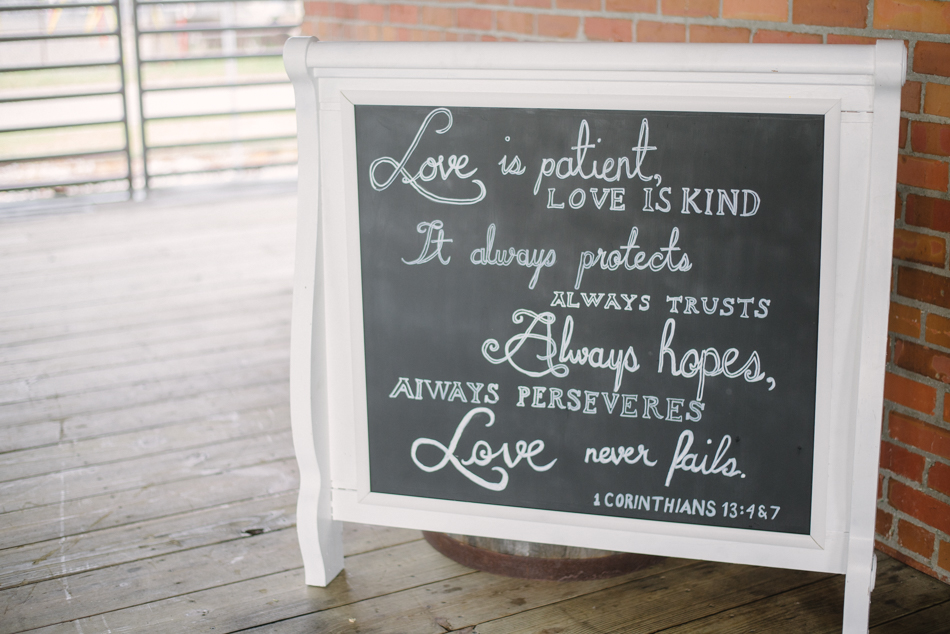 Love is patient,
LOVE IS KIND
It always protects
ALWAYS TRUSTS
Always hopes,
AlWAYS PERSEVERES
Love never fails.
1 CORINTHIANS 13:4&7